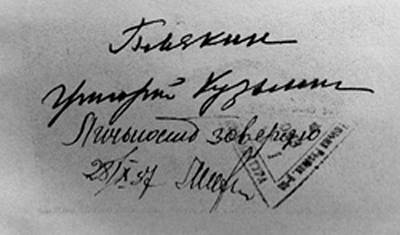 Блякин
Григорий Кузьмич
Личность заверяю
28/X 37